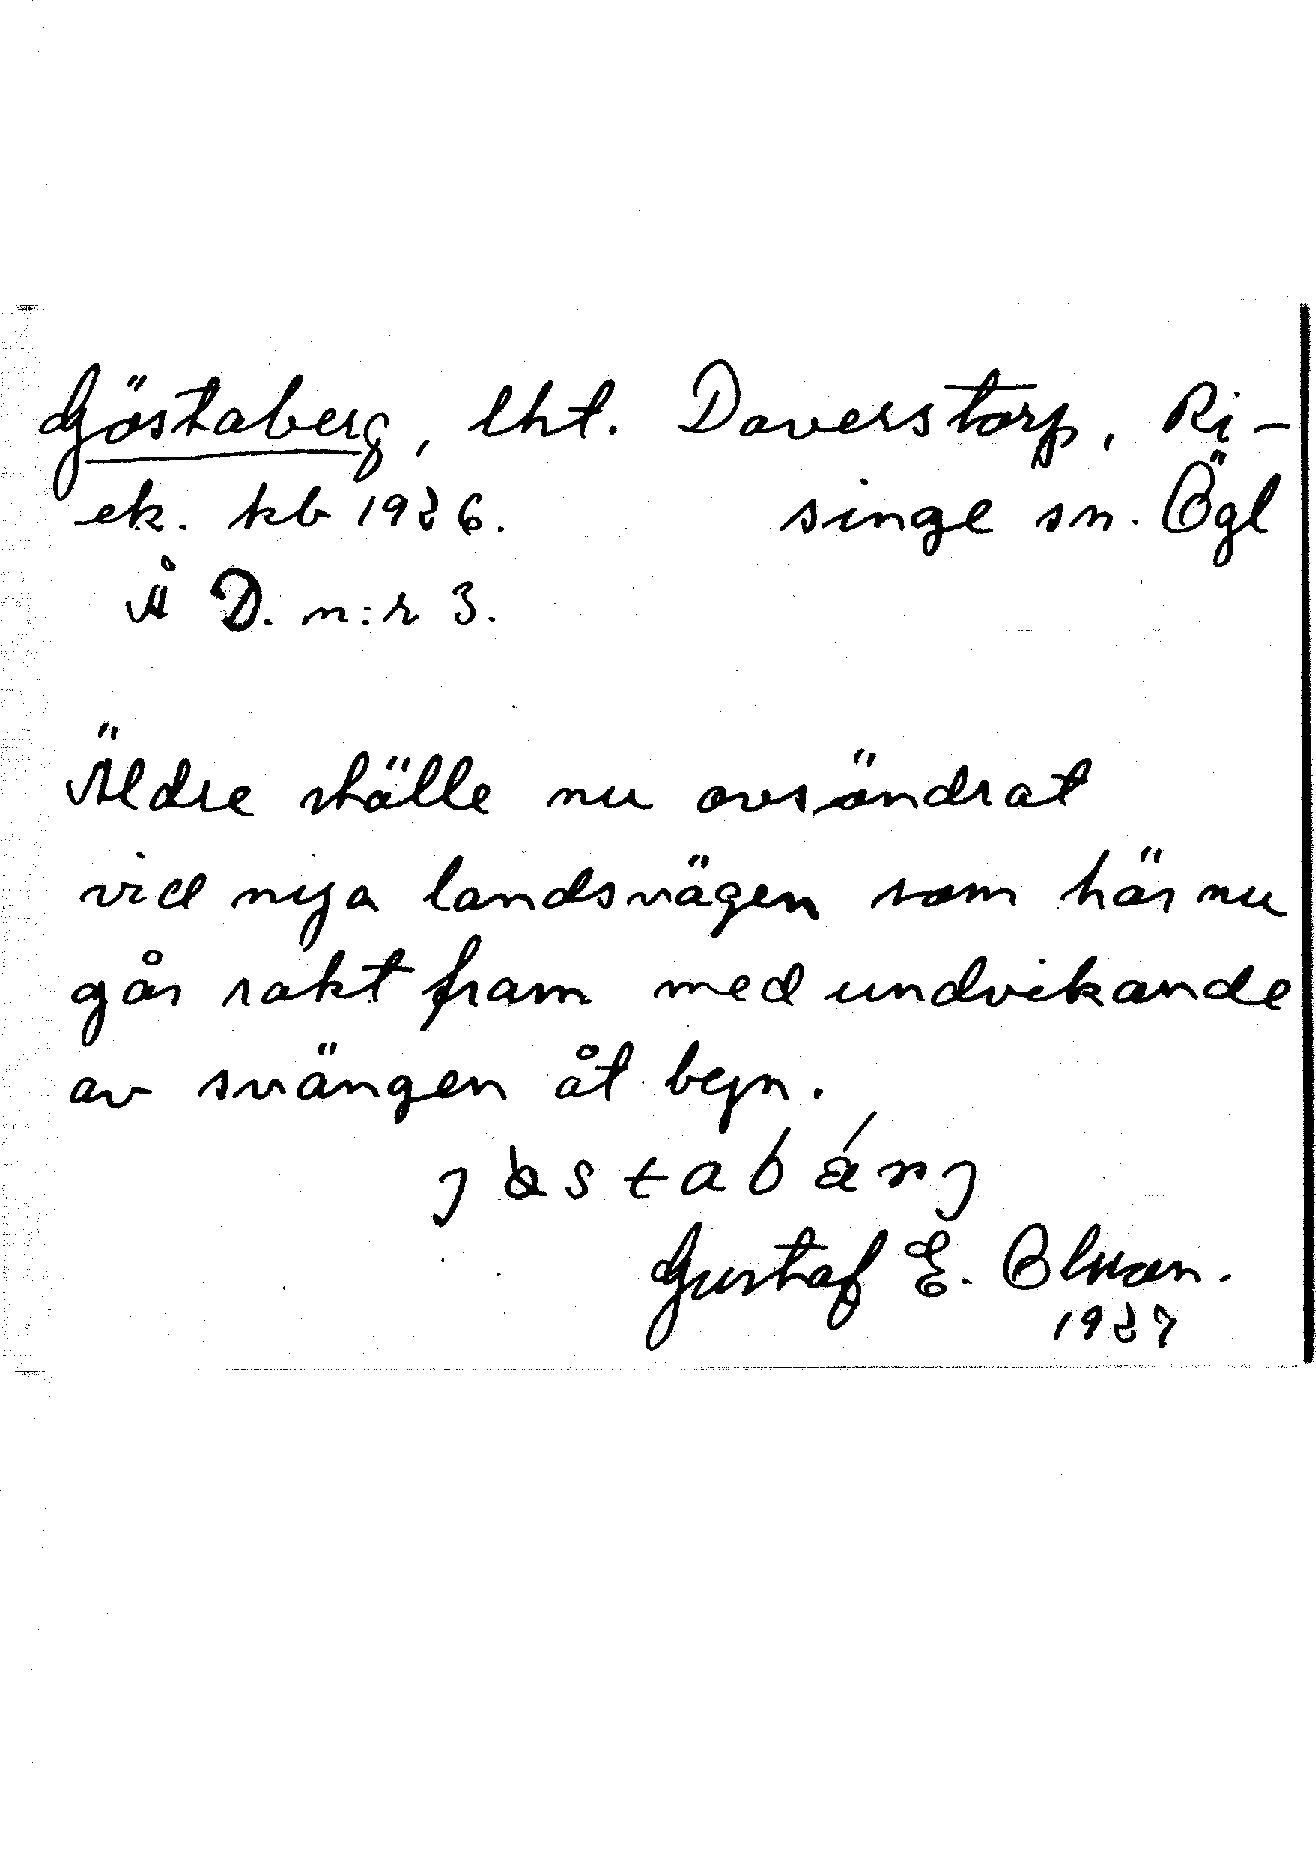 Göstaberg, lht. Daverstorp, Ri-
ek. kb 1926. singe sn. Ögl
Å D. n:r 3.
Äldre ställe nu avsöndrat
vid nya landsvägen som här nu
går rakt fram med undvikande
av svängen åt byn.
Gustaf E.
1927